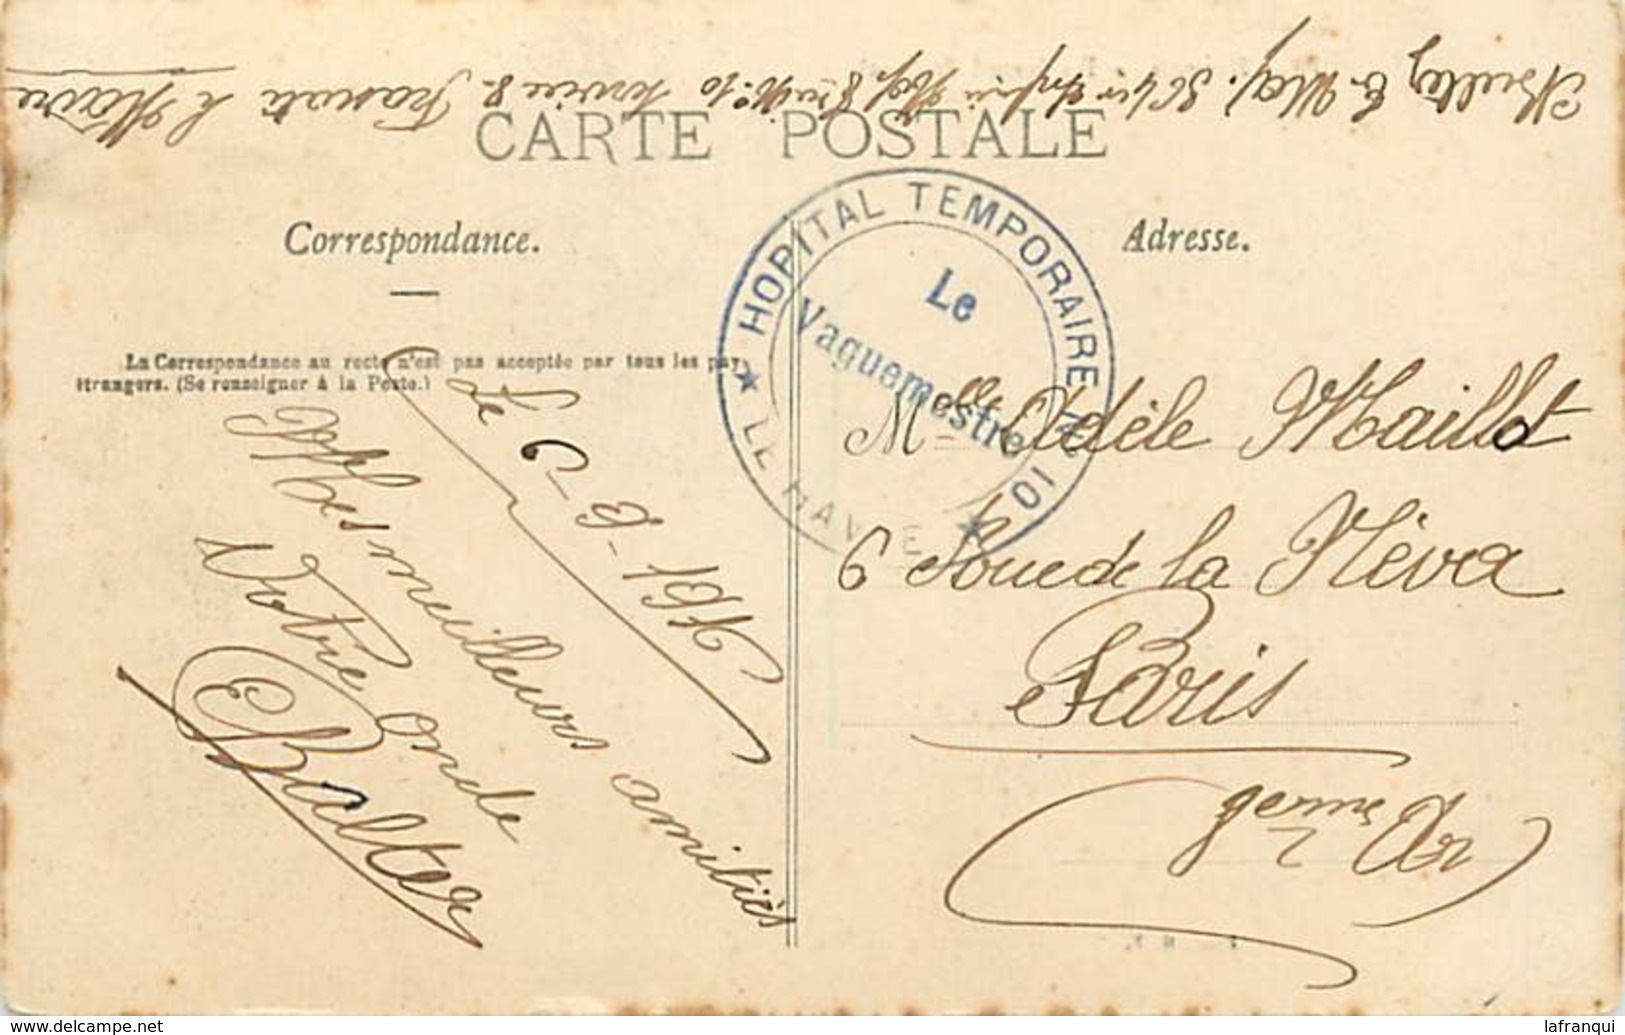 CARTE POSTALE
Correspondance.
Adresse.
La Correspondance au recto n'est pas acceptée par tous les pays
étrangers. (Se renseigner à la Poste.)
HOPITAL TEMPORAIRE N° 10
LE HAVRE
Le
Vaguemestre
Le 6-9-1916
Mes meilleurs amitiés
Votre Oncle
Mlle Adèle Maillot
6 Rue de la Néva
Paris
Service 8. Frascati le Havre
delcampe.net
lafranqui